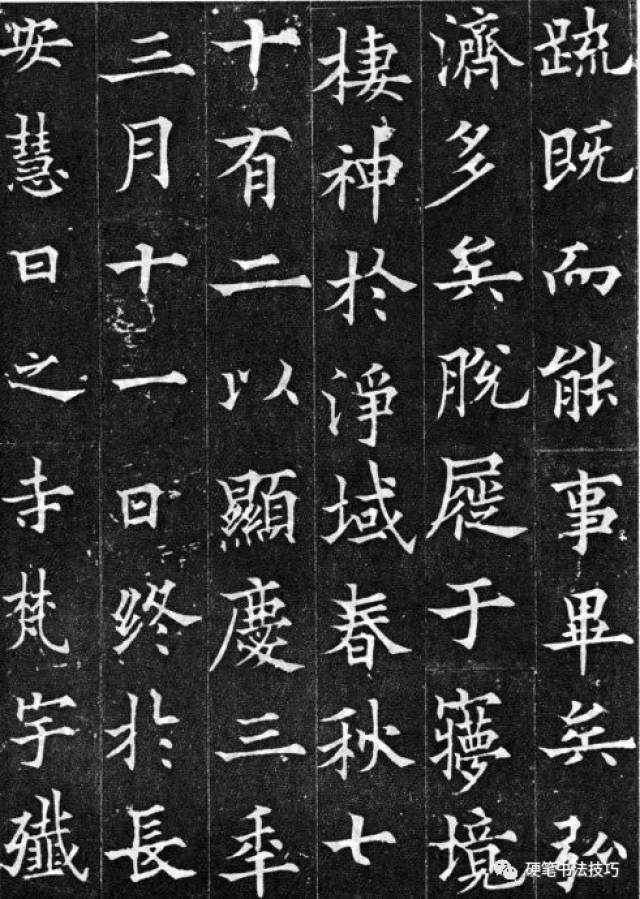 疏既而能事畢矣弘
濟多矣脫屣于㝱境
棲神於淨域春秋七
十有二以顯慶三年
三月十一日終於長
安慧日之寺梵宇殲
硬笔书法技巧